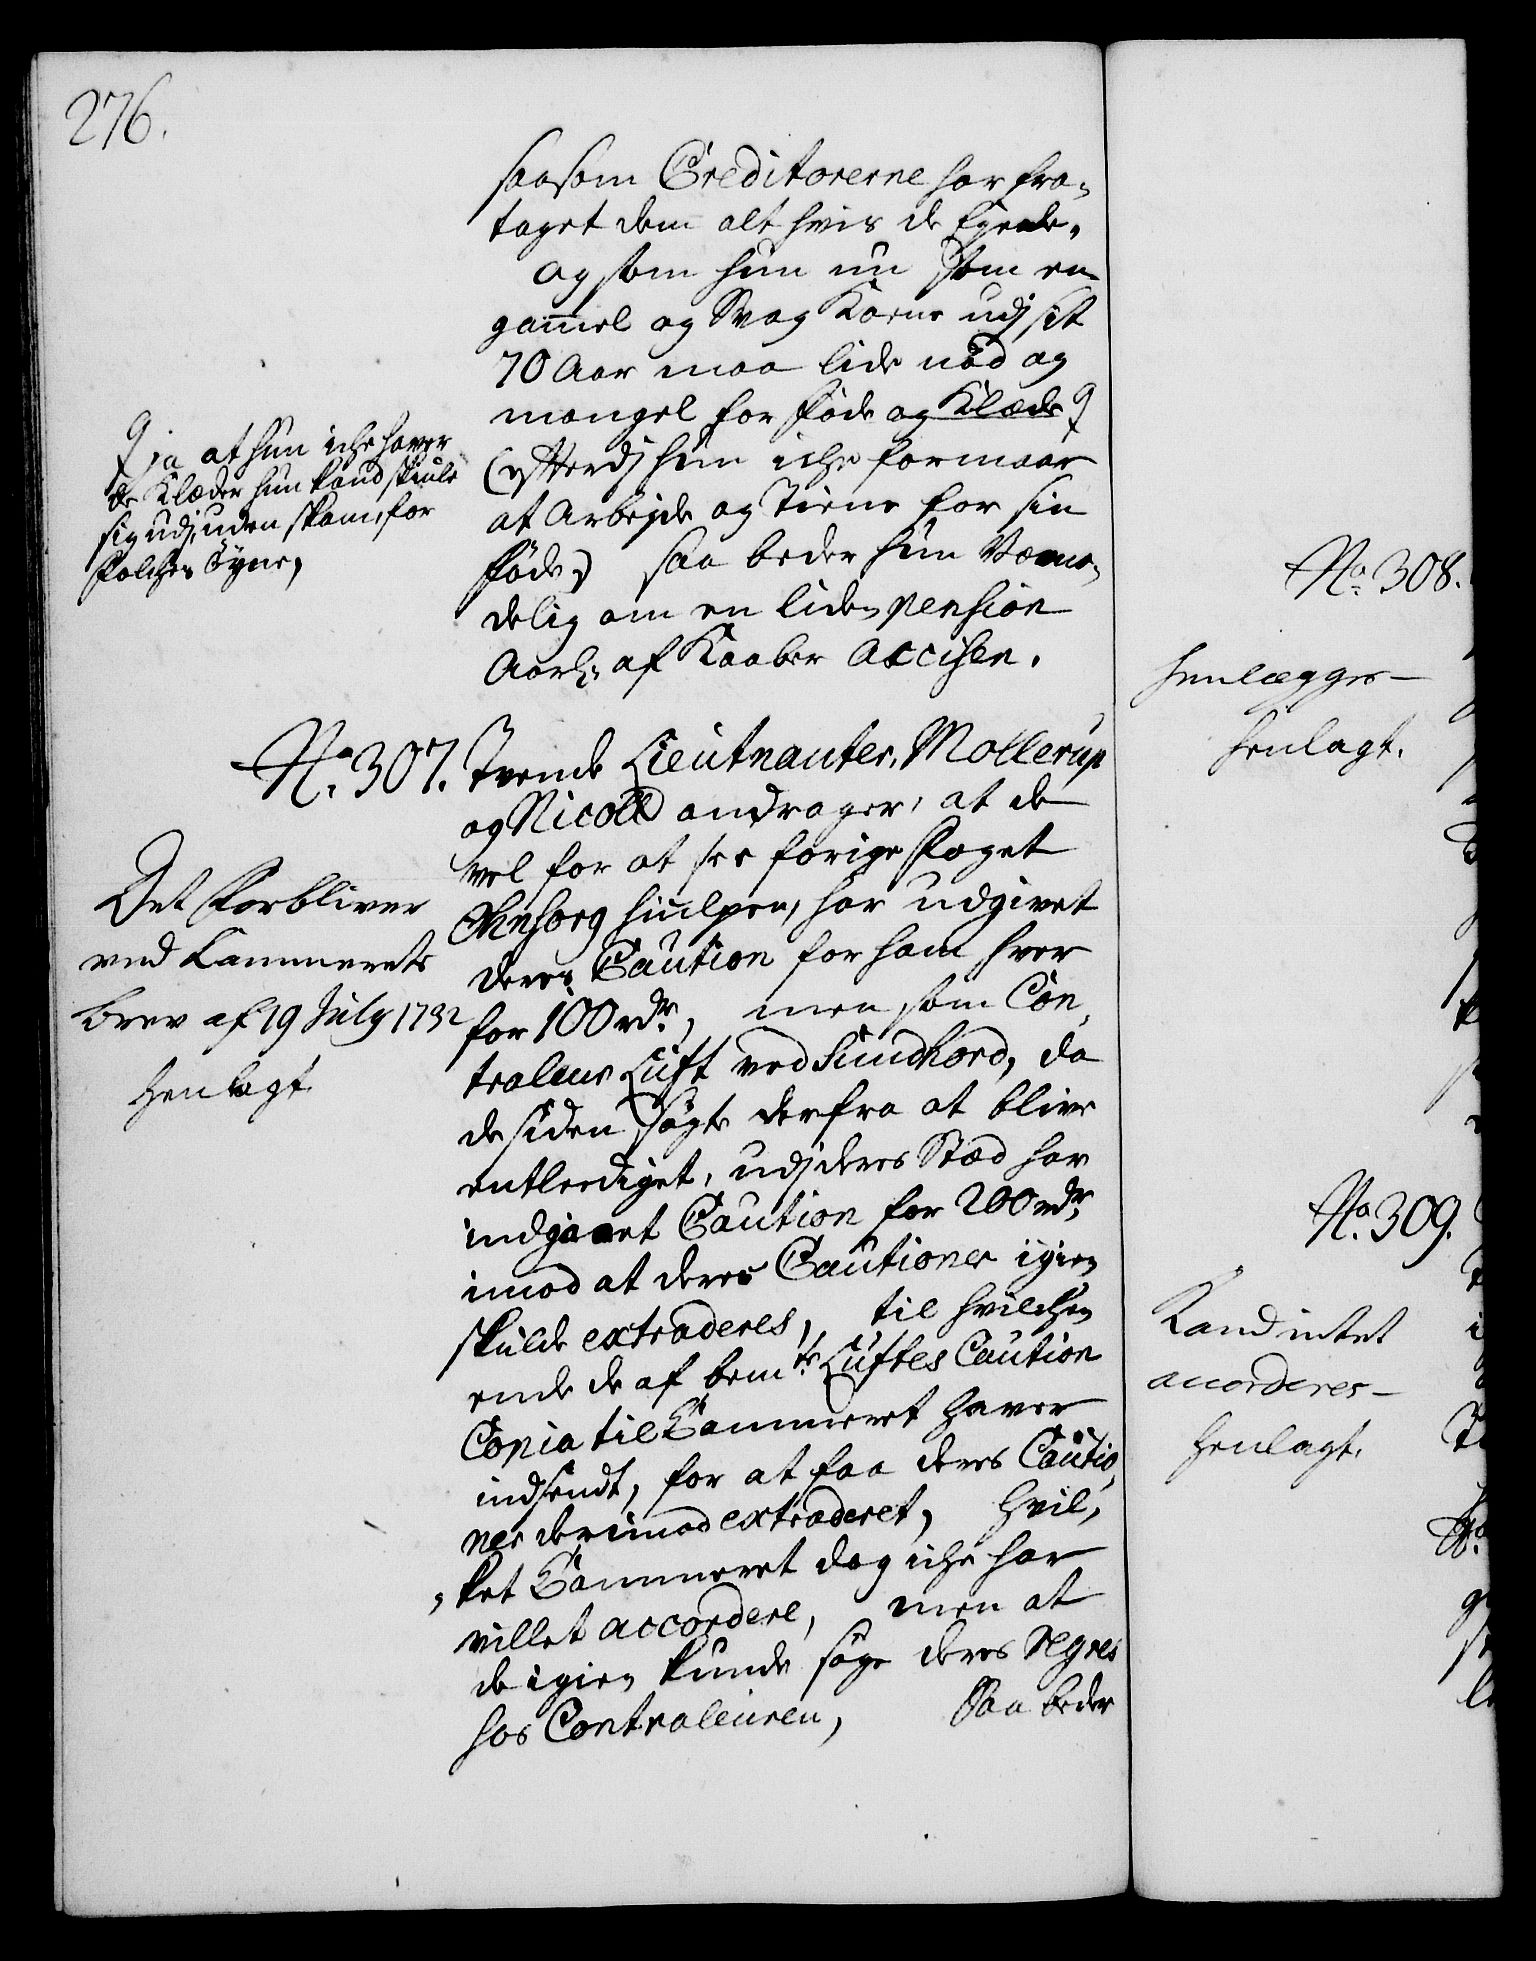 276.
saasom Creditorerne har fra-
taget dem alt hvis de Eyede,
og som hun nu som en
gammel og Svag Kone udj sit
70 Aar maa lide nød og
mangel for føde og Klæde
(efterdj hun iche formaar
at Arbejde og Tiene for sin
føde) saa beder hun
delig om en liden pension
Aarl: af Kaaber Accisen.
ja at hun iche haver
de Klæder hun kand skiule
sig udj, uden skam for
folches Øyne,
No. 307.
Tvende Lieutnanter, Mollerup
og Nicoll andrager, at de
vel for at see forige Foget
hiulpen, har udgivet
deres Caution for ham hver
for 100 rdr, men som Con-
traleur Luft ved Sundhord, da
de siden søgte derfra at blive
entlediget, udj deres Stæd har
indgaaet Caution for 200 rdr,
imod at deres Cautioner igien
skulde extraderes, til hvilchen
ende de af bemte Luftes Caution
Copia til Cammeret haver
indsendt, for at faa deres Cautio-
ner derimod extraderet, hvil-
ket Cammeret dog iche har
villet accordere, men at
de igien kunde søge deres regres
hos Contraleuren, Saa beder
Det forbliver
ved Cammerets
brev af 19 July 1732
henlagt
No. 308.
henlægges
henlagt.
No. 309.
Kand intet
accorderes
henlagt.